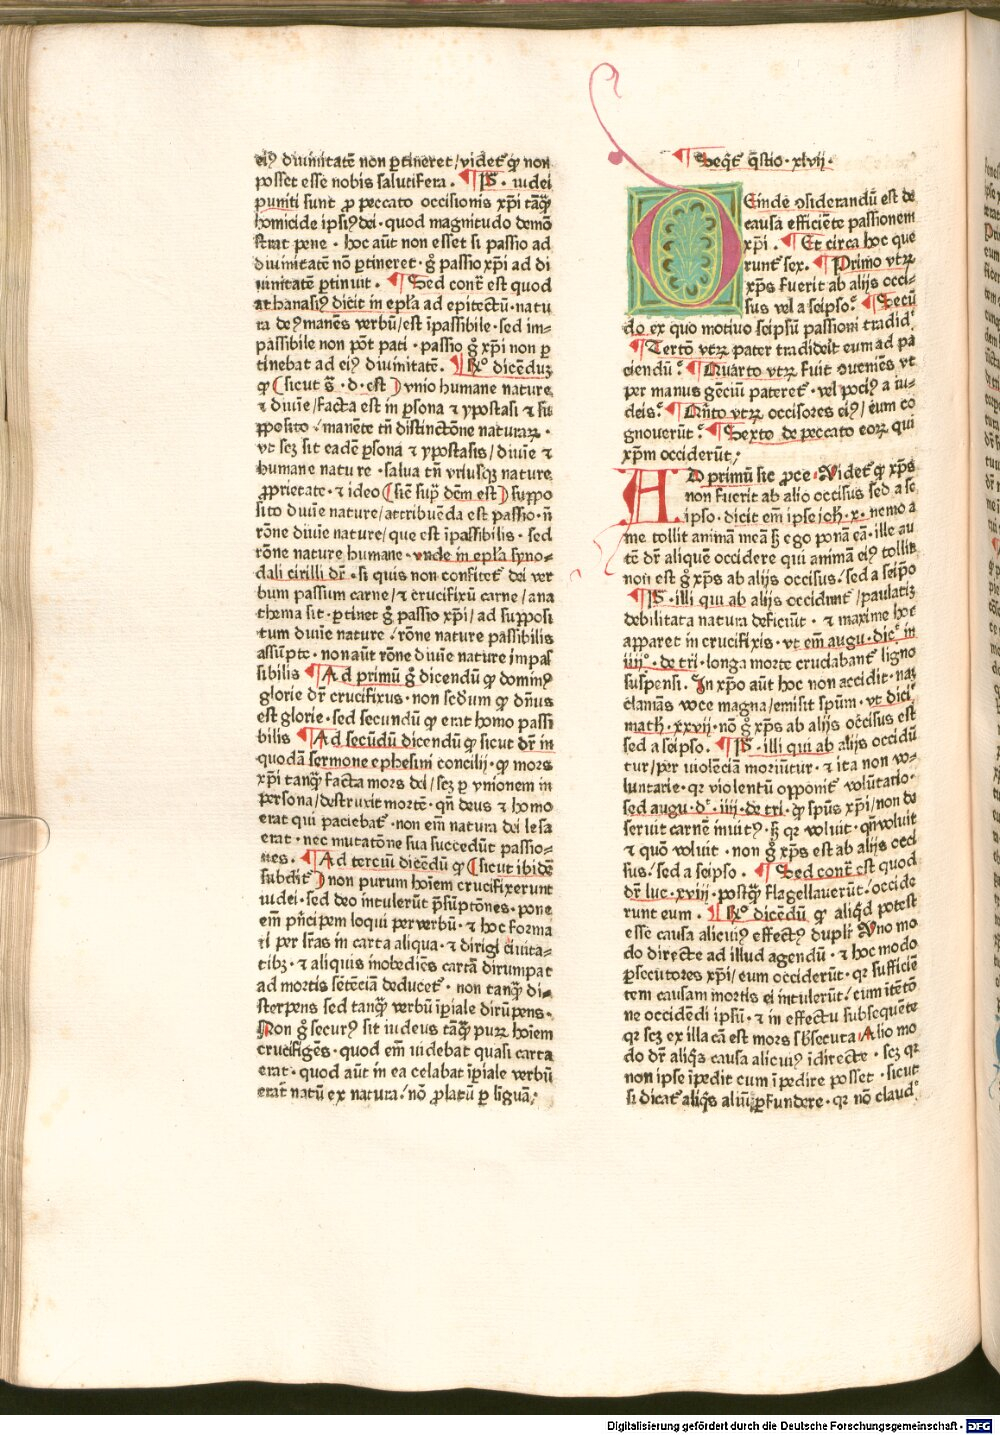 eiꝰ diuinitatē non ꝑtineret/videt᷑ ꝙ non
posset esse nobis salutifera. ¶ P̄. iudei
puniti sunt ꝓ peccato occisionis xp̄i tāꝙ̄
homicide ipsiꝰ dei · quod magnitudo demō
strat pene · hoc aūt non esset si passio ad
diuinitatē nō ꝑtineret · g̊ passio xp̄i ad di
uinitatē ꝑtinuit. ¶ Sed contᷓ est quod
athanasiꝰ dicit in epl̄a ad epitectū · natu
ra deꝰ manēs verbū/est īpassibile · sed im-
passibile non pōt pati · passio g̊ xp̄i non ꝑ
tinebat ad eiꝰ diuinitatē. ¶ Rº dicēduꝫ
ꝙ (sicut s̄ · d · est) vnio humane nature
⁊ diuīe/facta est in ꝑsona ⁊ ypostasi ⁊ su
ꝓposito / manēte tn̄ distinctōne naturaꝝ ·
vt scꝫ sit eadē ꝑsona ⁊ ypostasis/diuīe ⁊
humane nature · salua tn̄ vtriusqꝫ nature
ꝓprietate · ⁊ ideo (sic̄ supᷓ dēm est) suppo
sito diuīe nature/attribuēda est passio · n̄
rōne diuīe nature/que est īpassibilis · sed
rōne nature humane · vnde in epl̄a syno-
dali cirilli dr̄ · si quis non confitet᷑ dei ver
bum passum carne/⁊ crucifixū carne/ana
thema sit · ꝑtinet g̊ passio xp̄i/ad supposi
tum diuīe nature / rōne nature passibilis
assūpte · non aūt rōne diuīe nature impas
sibilis ¶ Ad primū g̊ dicendū ꝙ dominꝰ
glorie dr̄ crucifixus · non scdum ꝙ dn̄us
est glorie · sed secundū ꝙ erat homo passi
bilis ¶ Ad secūdū dicendū ꝙ sicut dr̄ in
quodā sermone ephesini concilij · ꝙ mors
xp̄i tanqᷓ facta mors dei/scꝫ ꝑ vnionem in
persona/destruxit mortē · qn̄ deus ⁊ homo
erat qui paciebat᷑ · non em̄ natura dei lesa
erat · nec mutatōne sua succedūt passio-
nes. ¶ Ad terciū dicēdū ꝙ (sicut ibidē
subdit᷑) non purum hoīem crucifixerunt
iudei · sed deo intulerūt p̄sūptōnes · pone
em̄ pn̄cipem loqui per verbū · ⁊ hoc forma
ri per lr̄as in carta aliqua · ⁊ dirigi ciuita-
tibꝫ · ⁊ aliquis inobediēs cartā dirumpat
ad mortis sētēciā deducet᷑ · non tanqᷓ di-
sterpens sed tanqᷓ verbū īpiale dirūpens ·
Non g̊ securꝰ sit iudeus tāqᷓ puꝝ hoīem
crucifigēs · quod em̄ uidebat quasi carta
erat · quod aūt in ea celabat᷑ īpiale verbū
erat natū ex natura / nō ꝓlatū ꝑ liguā;
¶ Seqt᷑ qstio · xlvii ·
DEinde ꝯsiderandū est de
causa efficiēte passionem
xp̄i. ¶ Et circa hoc que
runt᷑ sex. ¶ Primo vtꝝ
xp̄s fuerit ab alijs occi-
sus vel a seipso. ¶ Secū
do ex quo motiuo seipsū passioni tradid᷑
¶ Tertō vtꝝ pater tradidit eum ad pa
ciendū. ¶ Quarto vtꝝ fuit ꝯueniēs vt
per manus gēciū pateret᷑ · vel pociꝰ a iu-
deis. ¶ Qn̄to vtꝝ occisores eiꝰ/eum co
gnouerūt. ¶ Sexto de peccato eoꝝ qui
xp̄m occiderūt;
AD primū sic ꝓce · Videt᷑ ꝙ xp̄s
non fuerit ab alio occisus sed a se
ipso · dicit em̄ ipse ioh · x · nemo a
me tollit animā meā sꝫ ego ponā eā · ille au
tē dr̄ aliquē occidere qui animā eiꝰ tollit
non est g̊ xp̄s ab alijs occisus / sed a seip̄o
¶ P̄ · illi qui ab alijs occidunt᷑/paulatiꝫ
debilitata natura deficiūt · ⁊ maxime hoc
apparet in crucifixis · vt em̄ augu · dicͦ in
iiijͦ · de tri · longa morte crudabant᷑ ligno
suspensi. In xp̄o aūt hoc non accidit · naꝫ
clamās voce magna/emisit spūm · vt dici᷑
math · xxvij · nō g̊ xp̄s ab alijs occisus est
sed a seipso. ¶ P̄ · illi qui ab alijs occidū
tur/per violēciā moriūtur · ⁊ ita non vo-
luntarie · qꝛ violentū opponit᷑ volūtario ·
sed augu · d᷑ · iiij · de tri · ꝙ spūs xp̄i/non de
seruit carnē inuitꝰ · sꝫ qꝛ voluit · qn̄ voluit
⁊ quō voluit · non g̊ xp̄s est ab alijs occi
sus / sed a seipso. ¶ Sed contᷓ est quod
dr̄ luc · xviij · postqᷓ flagellauerūt / occide
runt eum. ¶ Rº dicēdū ꝙ aliqd potest
esse causa alicuiꝰ effectꝰ duplr̄ Vno mo
do directe ad illud agendū · ⁊ hoc modo
ꝑsecutores xp̄i/eum occiderūt · qꝛ sufficiē
tem causam mortis ei intulerūt / cum itētō
ne occidēdi ipsū · ⁊ in effectu subsequēte
qꝛ scꝫ ex illa cā est mors sb̄secuta · Alio mo
do dr̄ aliqs causa alicuiꝰ īdirecte · scꝫ qꝛ
non ipse īpedit cum īpedire posset · sicut
si dicat᷑ aliqs aliū ꝑfundere · qꝛ nō claud᷑
Digitalisierung gefördert durch die Deutsche Forschungsgemeinschaft - DFG